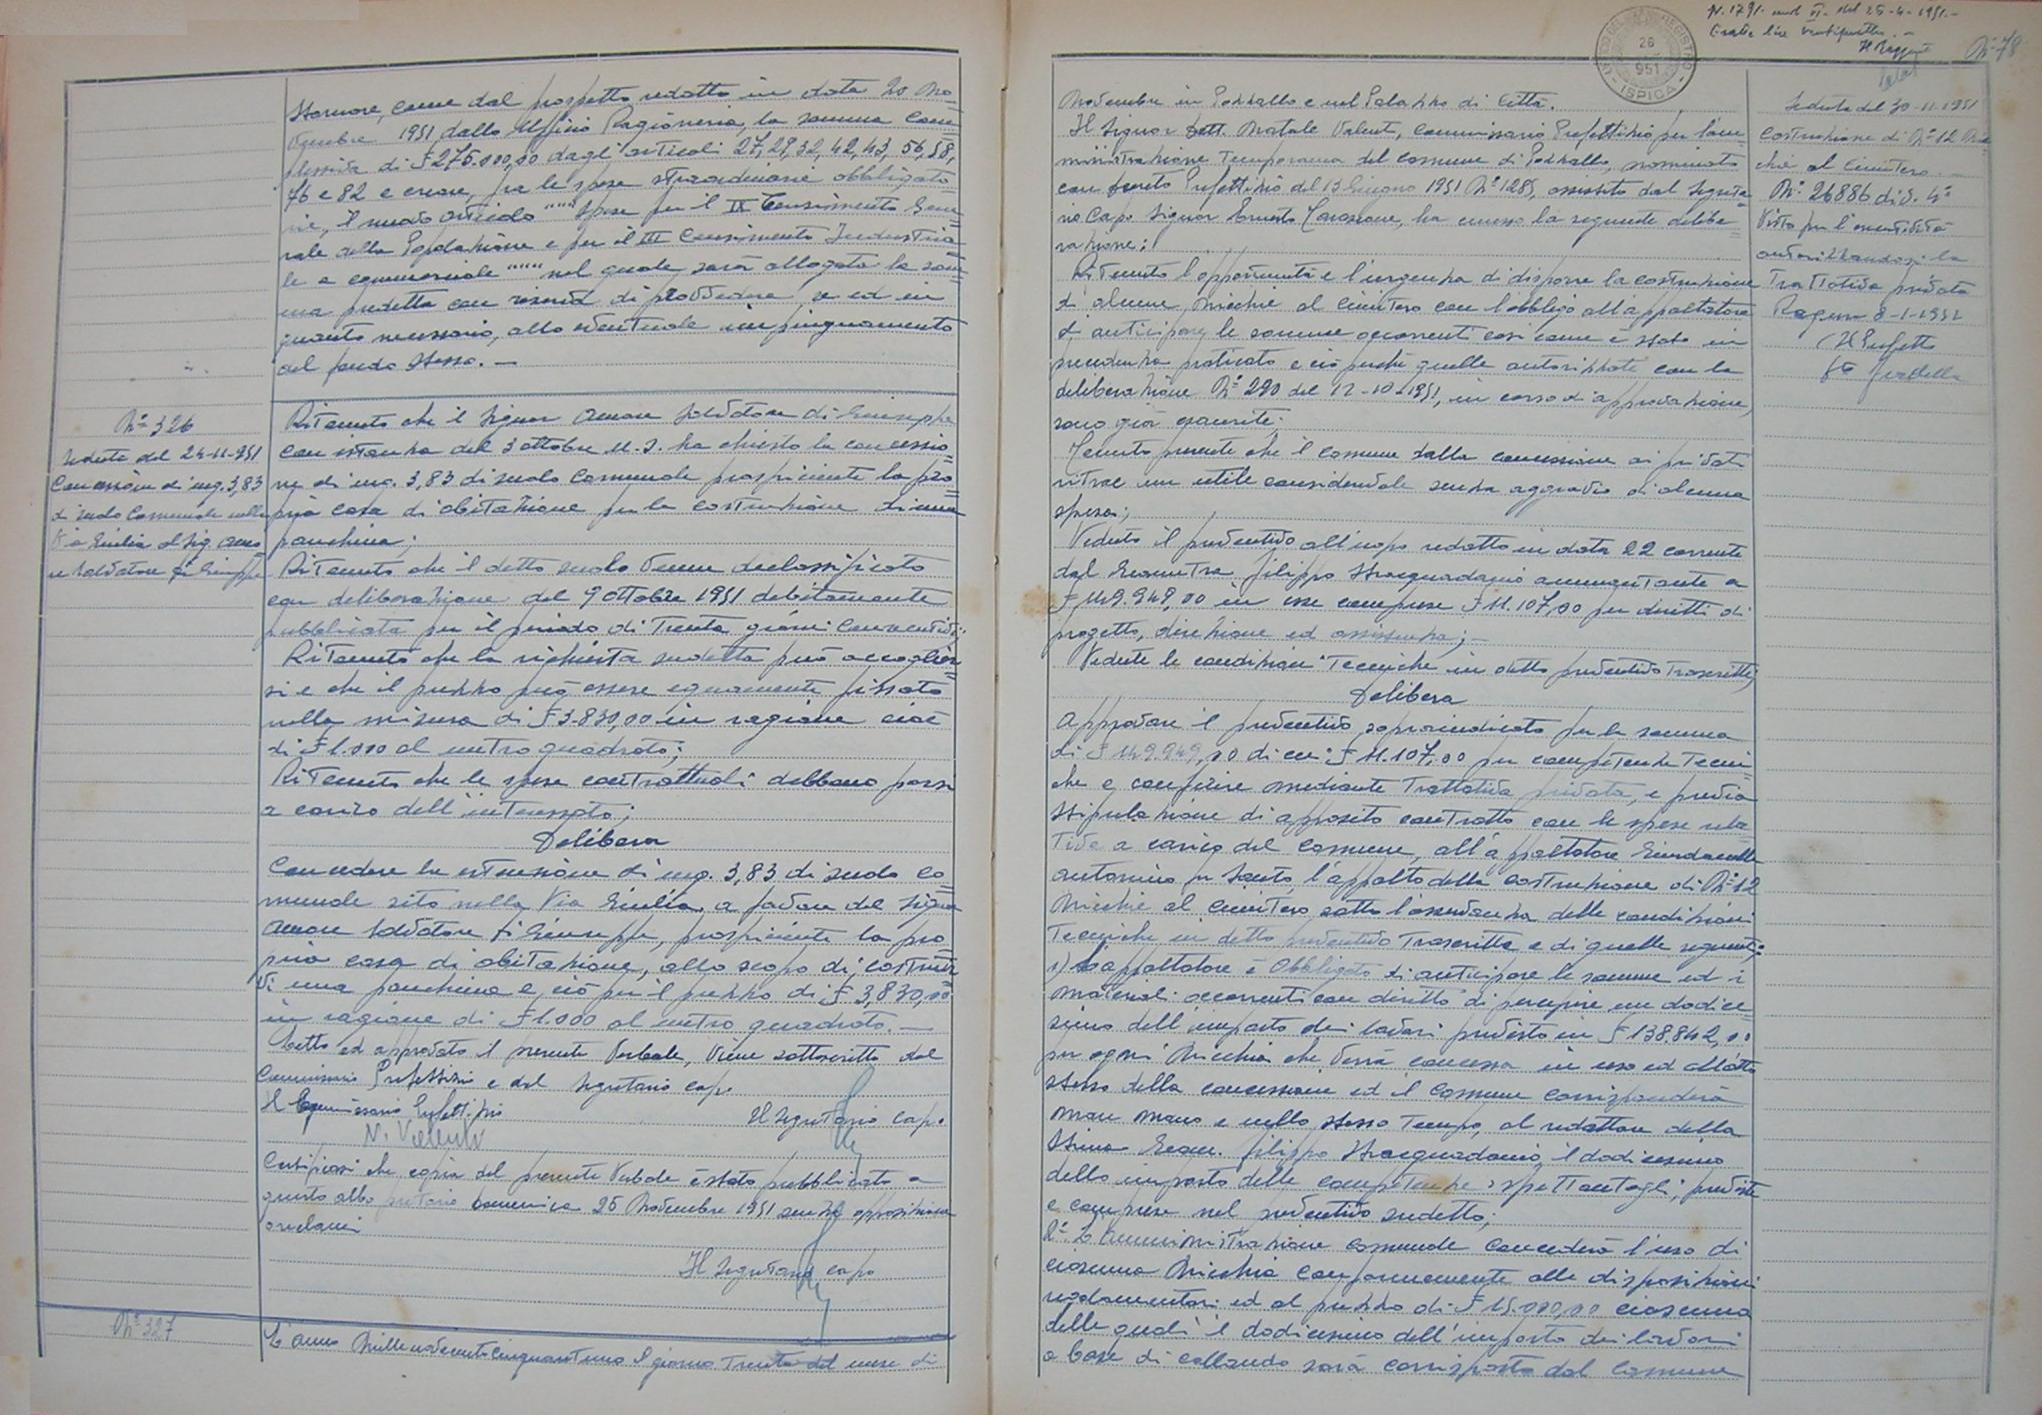 Stornare, come dal prospetto redatto in data 20 No=
vembre 1951 dallo Ufficio Ragioneria, la somma com=
plessiva di £ 275.000,00 dagli articoli 27, 29, 32, 42, 43, 56, 58,
76 e 82 e creare, fra le spese straordinarie obbligato=
rie, il nuovo articolo """" Spese per il IX Censimento Gene=
rale della Popolazione e per il III Censimento Industria=
le e commerciale """" nel quale sarà allogata la som=
ma predetta con riserva di provvedere, se ed in
quanto necessario, allo eventuale impinguamento
del fondo stesso. —
N° 326
Seduta del 24-11-951
Concessione di mq. 3,83
di suolo Comunale nella
Via Emilia al Sig. Amo
re Salvatore di Giuseppe
Ritenuto che il Signor Amore Salvatore di Giuseppe
con istanza del 3 ottobre u.s. ha chiesto la concessio=
ne di mq. 3,83 di suolo Comunale prospiciente la pro=
pria casa di abitazione per la costruzione di una
panchina;
Ritenuto che il detto suolo venne declassificato
con deliberazione del 9 ottobre 1951 debitamente
pubblicata per il periodo di trenta giorni consecutivi;
Ritenuto che la richiesta sudetta può accoglier=
si e che il prezzo può essere equamente fissato
nella misura di £ 3.830,00 in ragione cioè
di £ 1.000 al metro quadrato;
Ritenuto che le spese contrattuali debbano porsi
a carico dell'interessato;
Delibera
Concedere la estensione di mq. 3,83 di suolo co=
munale sito nella Via Emilia, a favore del Signor
Amore Salvatore di Giuseppe, prospiciente la pro=
pria casa di abitazione, allo scopo di costruir
vi una panchina e ciò per il prezzo di £ 3,830,00
in ragione di £ 1.000 al metro quadrato. —
Letto ed approvato il presente verbale, viene sottoscritto dal
Commissario Prefettizio e dal Segretario capo.
Il Commissario Prefettizio
Il Segretario capo.
N. Valenti
Certificasi che copia del presente verbale è stato pubblicato a
questo albo pretorio domenica 25 Novembre 1951 senza opposizioni
o reclami
Il Segretario capo
N° 327
L'anno Millenovecentocinquantuno il giorno trenta del mese di
N. 1791 mod VI del 26-4-1951. —
Esatte lire
Il Reggente
N° 78
UFFICIO DEL REGISTRO
26
951
ISPICA
Novembre in Pozzallo e nel Palazzo di Città.
Il Signor Dott. Natale Valenti, Commissario Prefettizio per l'am=
ministrazione temporanea del Comune di Pozzallo, nominato
con decreto Prefettizio del 13 Giugno 1951 N° 1285, assistito dal Segreta=
rio Capo Signor Ernesto, ha emesso la seguente delibe=
razione:
Ritenuto l'opportunità e l'urgenza di disporre la costruzione
di alcune nicchie al cimitero con l'obbligo all'appaltatore
di anticipare le somme occorrenti così come è stato in
precedenza praticato e ciò perchè quelle autorizzate con la
deliberazione N° 290 del 12-10-1951, in corso di approvazione,
sono già esaurite;
Tenuto presente che il comune dalla concessione ai privati
ritrae un utile considerevole senza aggravio di alcuna
spesa;
Veduto il preventivo all'uopo redatto in data 22 corrente
dal Geometra Filippo Stracquadanio ammontante a
£ 149.949,00 in esse comprese £ 11.107,00 per diritti di
progetto, direzione ed assistenza; —
Vedute le condizioni Tecniche in detto preventivo trascritte;
Delibera
Approvare il preventivo sopraindicato per la somma
di £ 149.949,00 di cui £ 11.107,00 per competenze Tecni=
che e conferire mediante trattativa privata, e previa
stipulazione di apposito contratto con le spese rela
tive a carico del Comune, all'appaltatore
Antonino fu Santo, l'appalto della costruzione di N° 12
nicchie al cimitero sotto l'osservanza delle condizioni
Tecniche in detto preventivo trascritte e di quelle seguenti:
1) L'appaltatore è obbligato di anticipare le somme ed i
materiali occorrenti con diritto di percepire un dodice
simo dell'importo dei lavori previsto in £ 138.842,00
per ogni nicchia che verrà concessa in uso ed all'atto
stesso della concessione ed il Comune corrisponderà
man mano e nello stesso tempo, al redattore della
stima Geom. Filippo Stracquadanio il dodicesimo
dello importo delle competenze spettantegli, previste
e comprese nel preventivo sudetto;
2° L'Amministrazione comunale concederà l'uso di
ciascuna nicchia conformemente alle disposizioni
regolamentari ed al prezzo di £ 15.000,00 ciascuna
delle quali il dodicesimo dell'importo dei lavori
a base di collaudo sarà corrisposto dal Comune
Seduta del 30-11-1951
Costruzione di N° 12 Nic
chie al Cimitero. —
N° 26886 div. 4ª
Visto per l'esecutività
autorizzandosi la
trattativa privata
Ragusa 8-1-1952
Il Prefetto